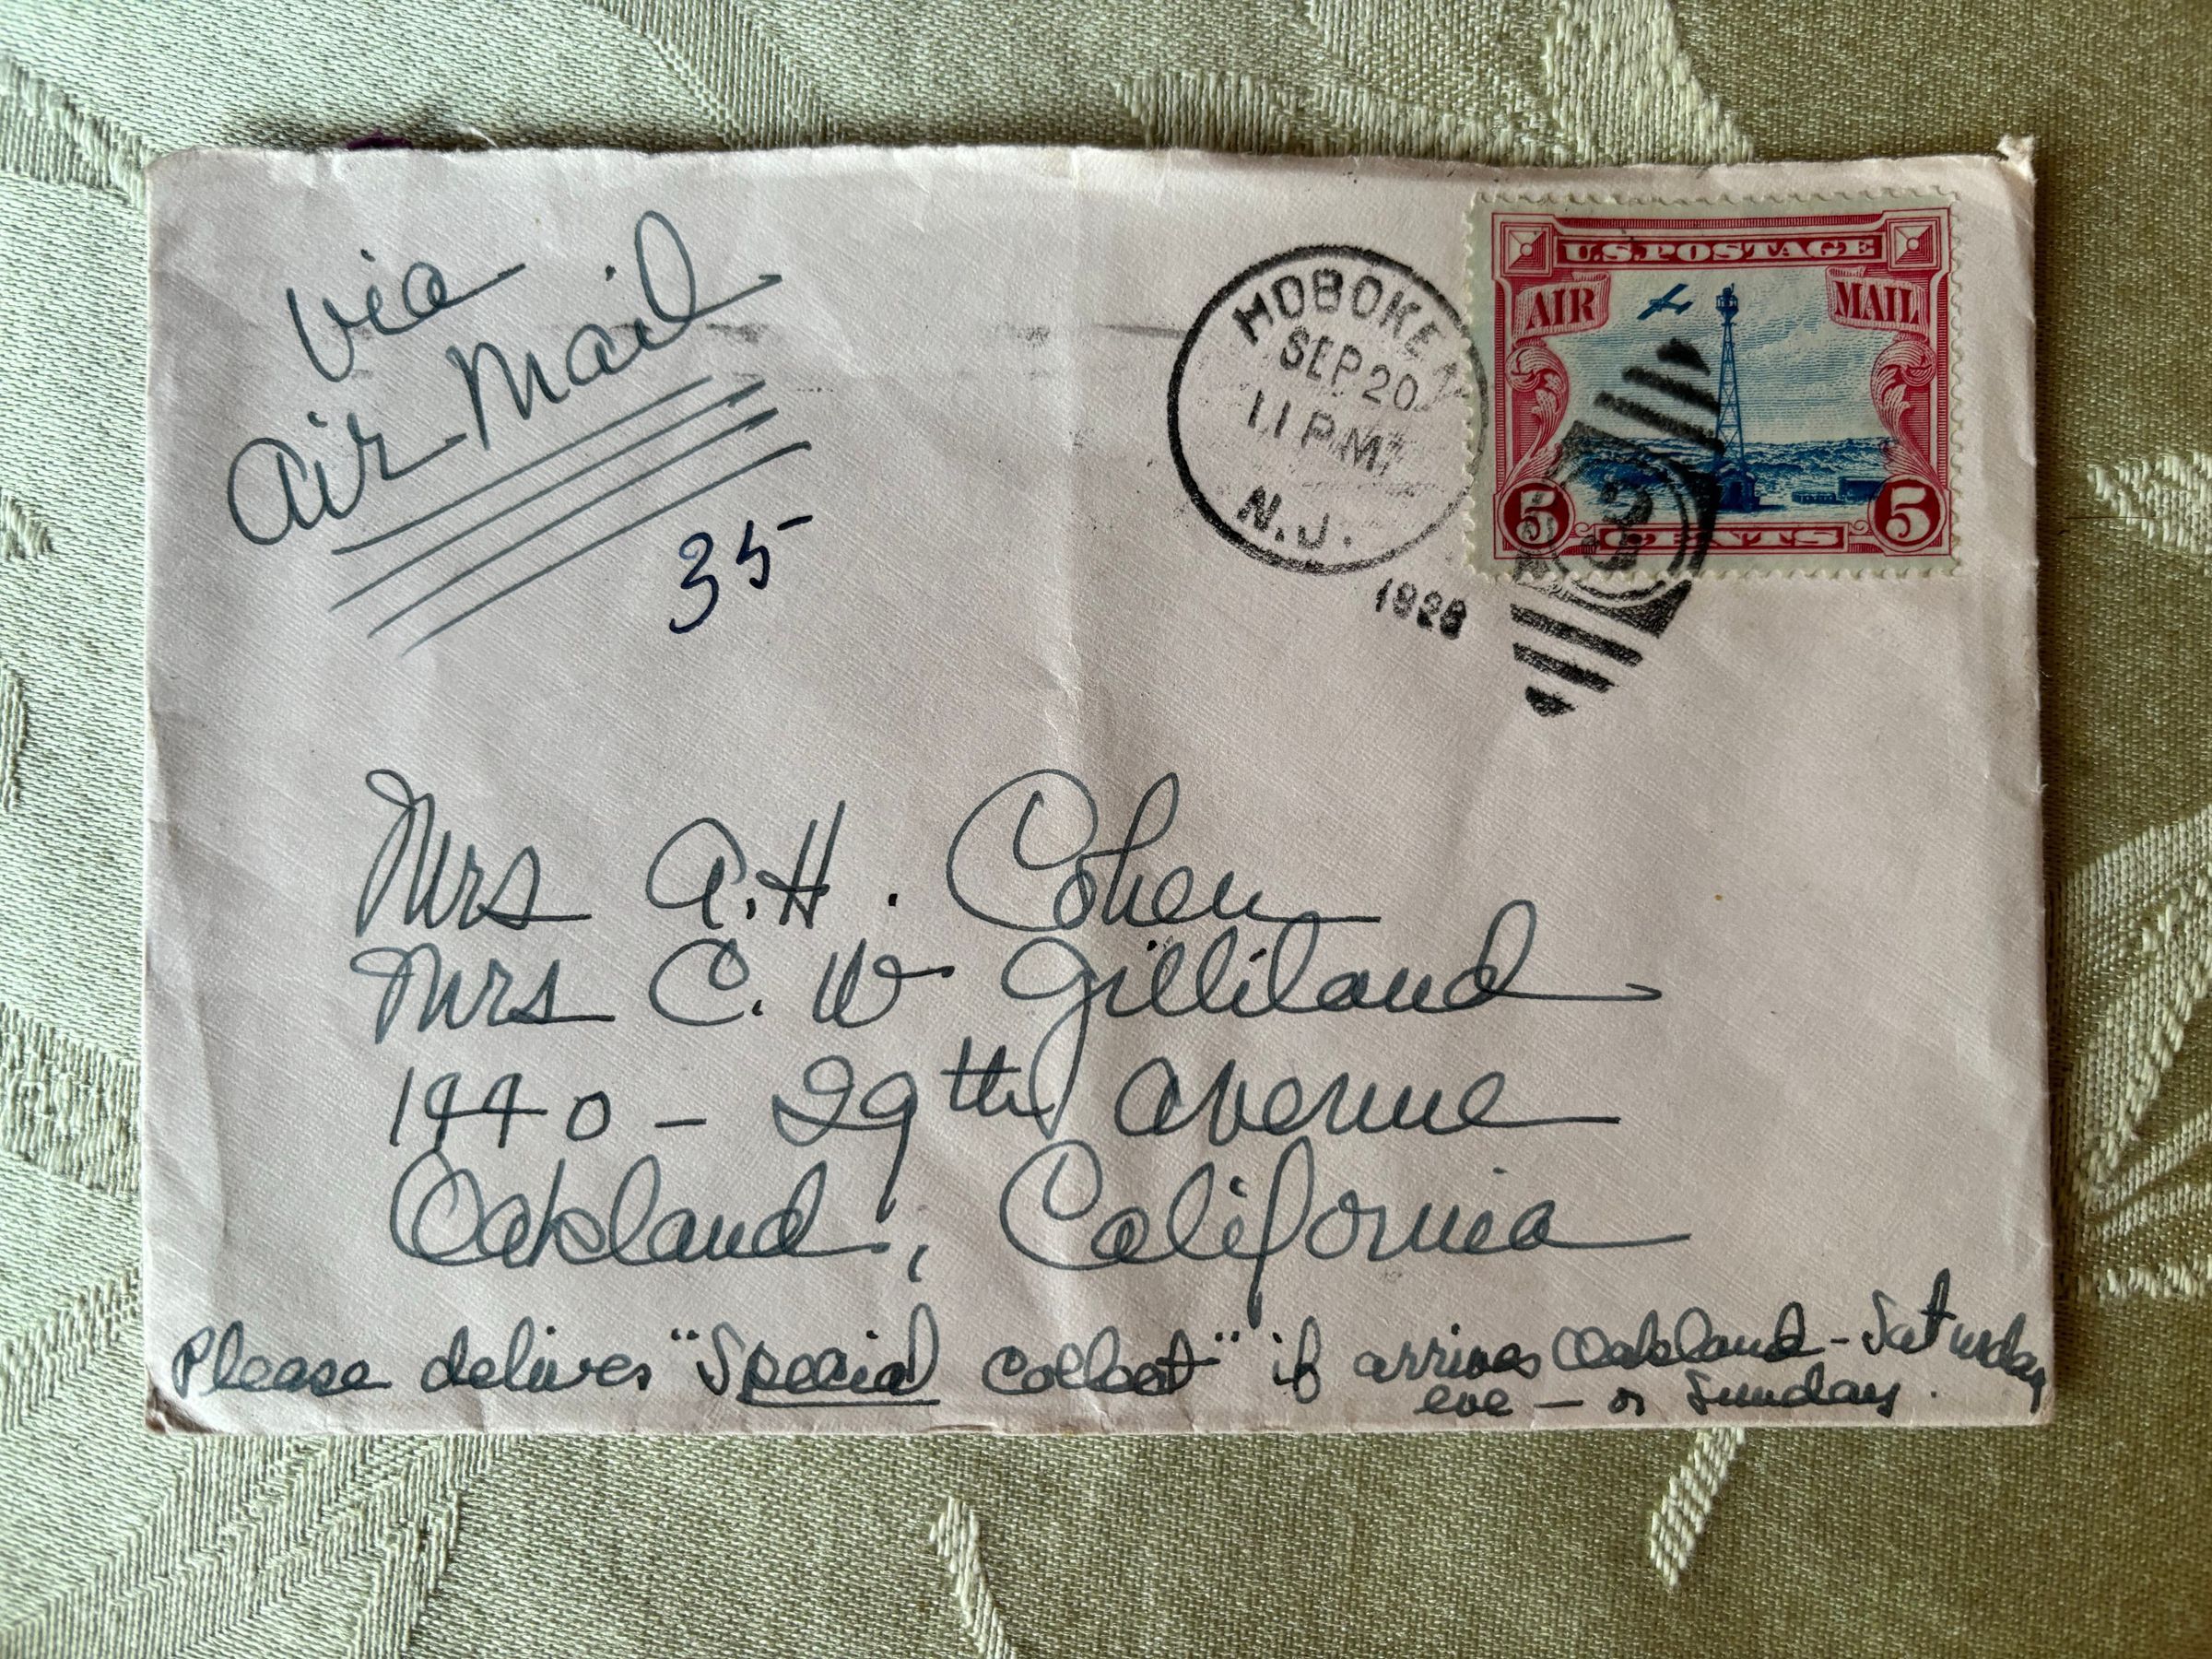 via
Air Mail
35
HOBOKEN
SEP 20
11 PM
N.J.
1928
U.S. POSTAGE
AIR MAIL
5 CENTS 5
3
Mrs A. H. Cohen
Mrs C. W Gilliland
1440 - 29th Avenue
Oakland, California
Please deliver "Special Collect" if arrives Oakland - Saturday
eve - or Sunday.